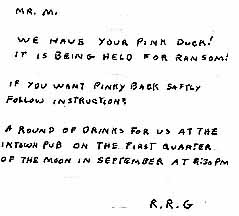 MR. M.
WE HAVE YOUR PINK DUCK!
IT IS BEING HELD FOR RANSOM!
IF YOU WANT PINKY BACK SAFLY
FOLLOW INSTRUCTIONS
A ROUND OF DRINKS FOR US AT THE
INTOWN PUB ON THE FIRST QUARTER
OF THE MOON IN SEPTEMBER AT 8:30PM
R.R.G